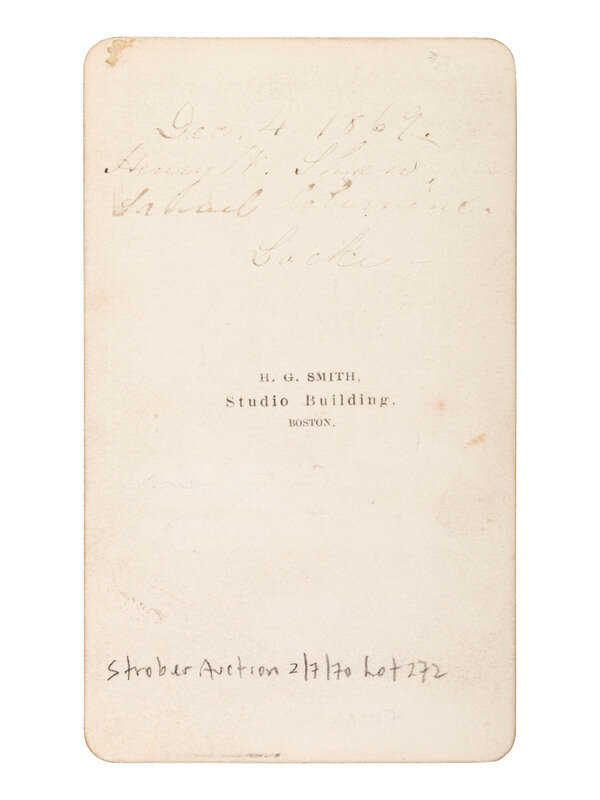 Dec. 4. 1869.
Henry W. Shaw,
Samuel Clemmens.
Locke
H. G. SMITH,
Studio Building,
BOSTON,
Strober Auction 2/7/70 Lot 272